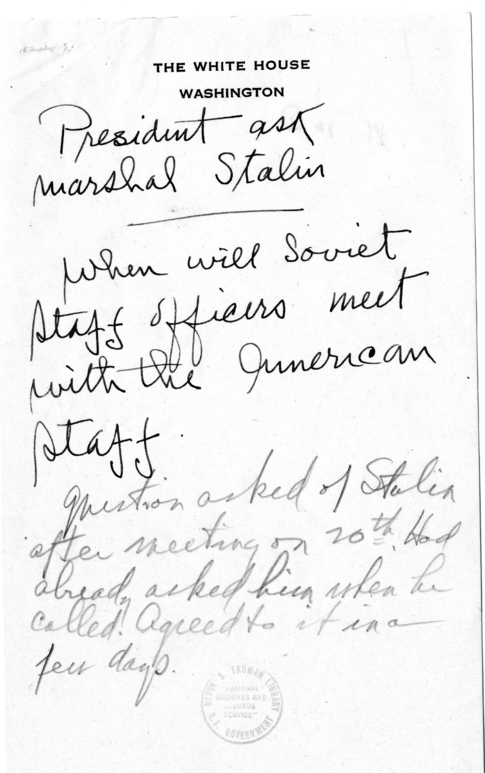 THE WHITE HOUSE
WASHINGTON
President ask
marshal Stalin
When will Soviet
staff officers meet
with the American
staff.
Question asked of Stalin
after meeting on 20th. Had
already asked him when he
called. Agreed to it in a
few days.
HARRY S. TRUMAN LIBRARY
NATIONAL
ARCHIVES AND
RECORDS
SERVICE
U.S. GOVERNMENT